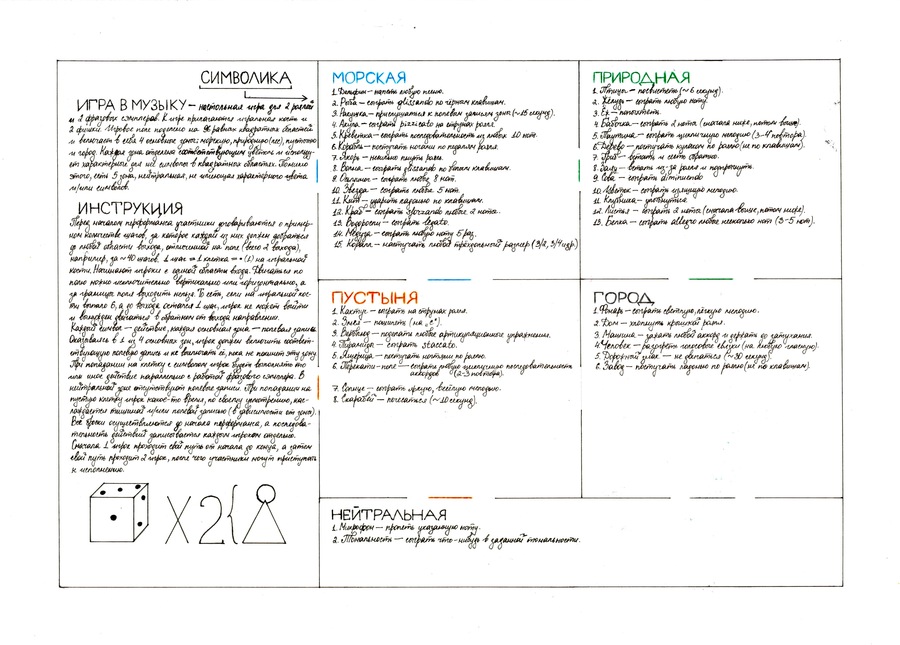 СИМВОЛИКА
ИГРА В МУЗЫКУ — настольная игра для 2 роялей
и 2 фразовых сэмплеров. К игре прилагаются игральная кость и
2 фишки. Игровое поле поделено на 96 равных квадратных областей
и включает в себя 4 основные зоны: морскую, природную (лес), пустыню
и город. Каждая зона отделена соответствующим цветом и
от характерного для неё символов в квадратных областях. Помимо
этого, есть 5 зона, нейтральная, не имеющая характерного цвета
и/или символов.
ИНСТРУКЦИЯ
Перед началом перформанса участники договариваются о пример-
ном количестве шагов, за которое каждый из них должен добраться
до любой области выхода, отмеченной на поле (всего 2 выхода),
например, за ~40 шагов. 1 шаг = 1 клетка = • (1) на игральной
кости. Начинают игроки с единой области входа. Двигаться по
полю можно исключительно вертикально или горизонтально, а
за границы поля выходить нельзя. То есть, если на игральной кос-
ти выпало 6, а до выхода остался 1 шаг, игрок не может выйти
и вынужден двигаться в обратном от выхода направлении.
Каждый символ — действие, каждая основная зона — полевая запись.
Оказываясь в 1 из 4 основных зон, игрок должен включить соответ-
ствующую полевую запись и не выключать её, пока не покинет эту зону.
При попадании на клетку с символом игрок будет выполнять то
или иное действие параллельно с работой фразового сэмплера. В
нейтральной зоне отсутствуют полевые записи. При попадании на
пустую клетку игрок какое-то время, по своему усмотрению, нас-
лаждается тишиной и/или полевой записью (в зависимости от зоны).
Все броски осуществляются до начала перформанса, а последова-
тельность действий записывается каждым игроком отдельно.
Сначала 1 игрок проходит свой путь от начала до конца, а затем
свой путь проходит 2 игрок, после чего участники могут приступать
к исполнению.
X2{
МОРСКАЯ
1. Дельфин — напеть любую песню.
2. Рыба — сыграть glissando по чёрным клавишам.
3. Ракушка — прислушаться к полевым записям зоны (~15 секунд).
4. сыграть pizzicato на струнах рояля.
5. Креветка — сыграть последовательность из любых 10 нот.
6. Корабль — постучать ногами по педалям рояля.
7. Якорь — несильно пнуть рояль.
8. Волна — сыграть glissando по белым клавишам.
9. Осьминог — сыграть любые 8 нот.
10. Звезда — сыграть любые 5 нот.
11. Кит — ударить ладонью по клавишам.
12. Краб — сыграть sforzando любые 2 ноты.
13. Водоросли — сыграть legato.
14. Медуза — сыграть любую ноту 5 раз.
15. Коралл — настучать любой трёхдольный размер (3/2, 3/4 и др.)
ПРИРОДНАЯ
1. Птицы — посвистеть (~6 секунд).
2. Жёлудь — сыграть любую ноту.
3. Ёж — попыхтеть.
4. Бабочка — сыграть 2 ноты (сначала ниже, потом выше).
5. Паутина — сыграть цикличную мелодию (3-4 повтора).
6. Дерево — постучать кулаком по роялю (не по клавишам).
7. Гриб — встать и сесть обратно.
8. встать из-за рояля и
9. Сова — сыграть diminuendo
10. Цветок — сыграть изящную мелодию.
11. Клубника — улыбнуться.
12. Листья — сыграть 2 ноты (сначала выше, потом ниже).
13. Белка — сыграть allegro любые несколько нот (3-5 нот).
ПУСТЫНЯ
1. Кактус — сыграть на струнах рояля.
2. Змея — пошипеть (на „с“).
3. Верблюд — поделать любые артикуляционные упражнения.
4. Пирамида — сыграть staccato.
5. Ящерица — постучать ногтями по роялю.
6. Перекати-поле — сыграть любую цикличную последовательность
аккордов (2-3 повтора).
7. Солнце — сыграть яркую, весёлую мелодию.
8. Скарабей — почесаться (~10 секунд).
ГОРОД
1. Фонарь — сыграть светлую, лёгкую мелодию.
2. Дом — хлопнуть крышкой рояля.
3. Машина — зажать любой аккорд и держать до затухания.
4. Человек — разогреть голосовые связки (на любую гласную).
5. Дорожный знак — не двигаться (~30 секунд).
6. Завод — постучать ладонью по роялю (не по клавишам).
НЕЙТРАЛЬНАЯ
1. Микрофон — пропеть указанную ноту.
2. Тональность — сыграть что-нибудь в заданной тональности.